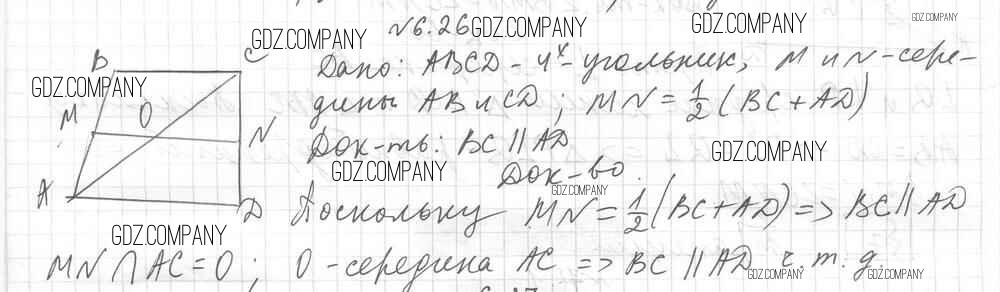 №6.26 GDZ.COMPANY GDZ.COMPANY GDZ.COMPANY
B C GDZ.COMPANY
Дано: ABCD - 4х-угольник, M и N-сере-
GDZ.COMPANY
дины AB и CD; MN = 1/2 (BC + AD)
M O N
Док-ть: BC || AD GDZ.COMPANY
GDZ.COMPANY Док-во.
A D GDZ.COMPANY
Поскольку MN = 1/2 (BC + AD) => BC || AD
GDZ.COMPANY
MN ∩ AC = O; O - середина AC => BC || AD ч.т.д.
GDZ.COMPANY GDZ.COMPANY